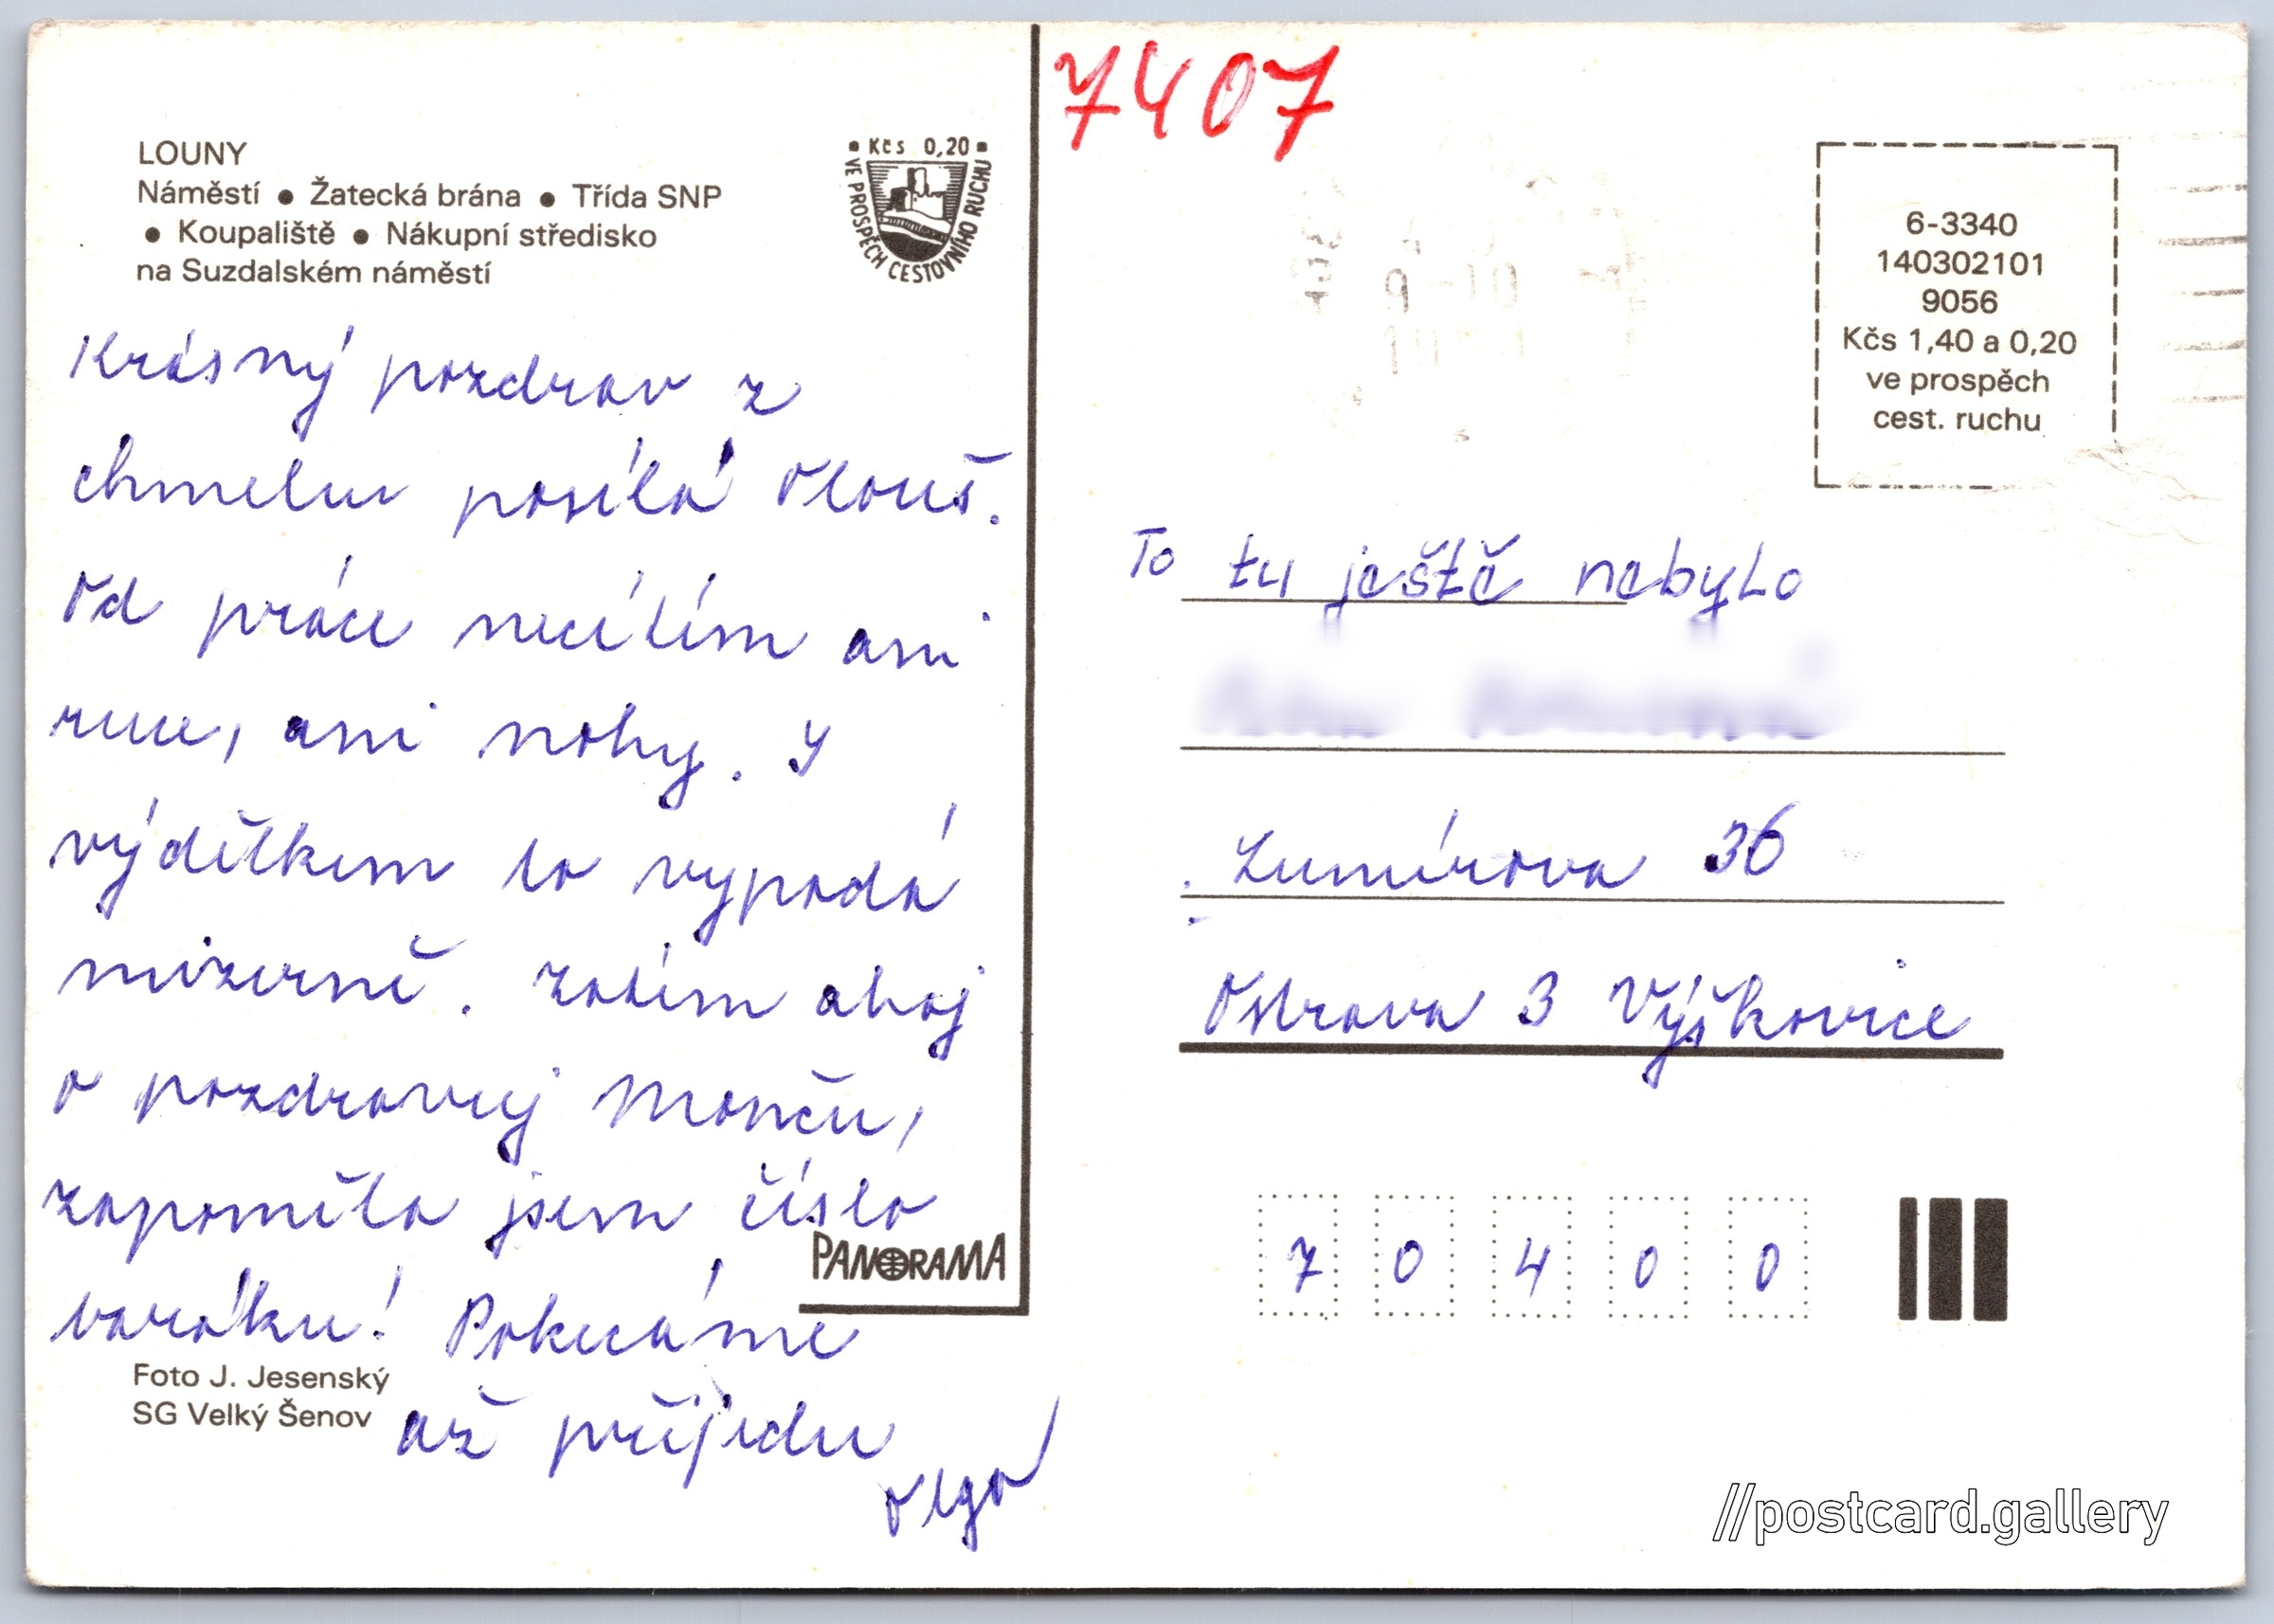 7407
LOUNY
Náměstí ● Žatecká brána ● Třída SNP
● Koupaliště ● Nákupní středisko
na Suzdalském náměstí
▪ Kčs 0,20 ▪
VE PROSPĚCH CESTOVNÍHO RUCHU
Krásný pozdrav z
chmelu posílá Olouš.
Od práce necítím ani
ruce, ani nohy. S
výdělkem to vypadá
mizerně. Zatím ahoj
a pozdravuj Monču,
zapoměla jsem číslo
baráku! Pokecáme
až příjedu
Olga
PANORAMA
Foto J. Jesenský
SG Velký Šenov
9-10
6-3340
140302101
9056
Kčs 1,40 a 0,20
ve prospěch
cest. ruchu
To tu ještě nebylo
Lumírova 36
Ostrava 3 Výškovice
7 0 4 0 0
//postcard.gallery